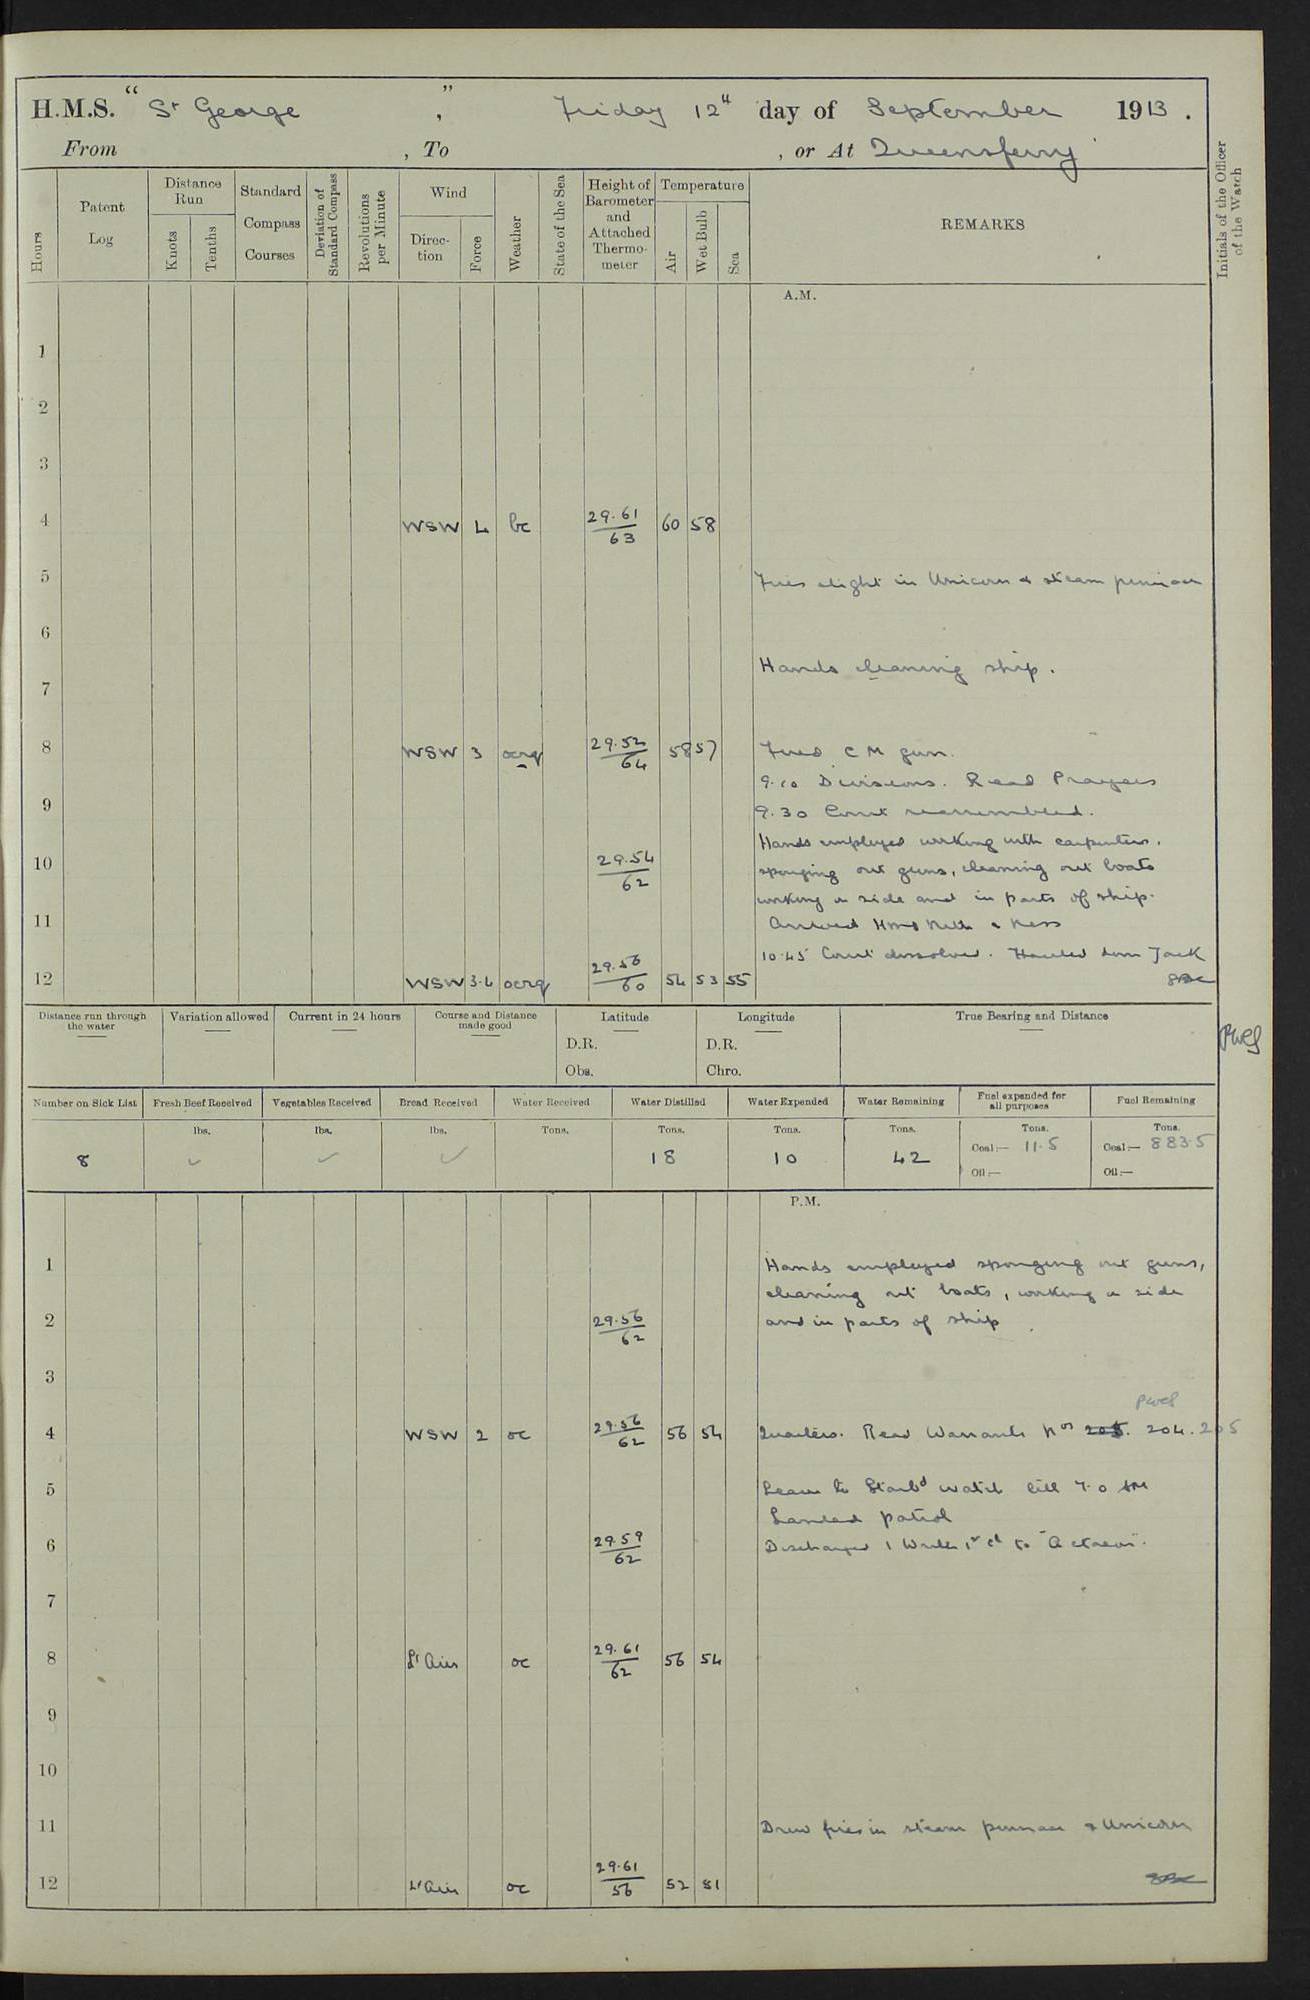 H.M.S. " St George " , Friday 12th day of September 1913 .
From , To , or At Queensferry
Hours
Patent Log
Distance Run
Knots
Tenths
Standard Compass Courses
Deviation of Standard Compass
Revolutions per Minute
Wind
Direction
Force
Weather
State of the Sea
Height of Barometer and Attached Thermometer
Temperature
Air
Wet Bulb
Sea
REMARKS
Initials of the Officer of the Watch
A.M.
1
2
3
4 WSW 4 bc 29.61/63 60 58
5 Fires alight in Unicorn & steam pinnace
6
Hands cleaning ship.
7
8 WSW 3 ocrq 29.52/64 58 57 Fired C M gun.
9.10 Divisions. Read Prayers
9 9.30 Court reassembled.
Hands employed working with carpenters.
10 29.54/62 sponging out guns, cleaning out boats
working on side and in parts of ship.
11 Arrived HMS & Ness
10.45 Court dissolved. Hauled down Jack
12 WSW 3.4 ocrq 29.56/60 54 53 55
Distance run through the water
Variation allowed
Current in 24 hours
Course and Distance made good
Latitude
D.R.
Obs.
Longitude
D.R.
Chro.
True Bearing and Distance
Number on Sick List
Fresh Beef Received
Vegetables Received
Bread Received
Water Received
Water Distilled
Water Expended
Water Remaining
Fuel expended for all purposes
Fuel Remaining
lbs. lbs. lbs. Tons. Tons. Tons. Tons. Tons. Tons.
8 ✓ ✓ ✓ 18 10 42 Coal:— 11.5 Coal:— 883.5
Oil:— Oil:—
P.M.
1 Hands employed sponging out guns,
cleaning out boats, working on side
2 29.56/62 and in parts of ship
3
4 WSW 2 oc 29.56/62 56 54 Quarters. Read Warrants Nos 205. 204. 205
5 Leave to Starbd watch till 7.0 AM
Landed patrol
6 29.59/62 Discharged 1 Writer 1st cl to "Actaeon".
7
8 Lt Airs oc 29.61/62 56 54
9
10
11 Drew fires in steam pinnace & Unicorn
12 Lt Airs oc 29.61/56 52 51